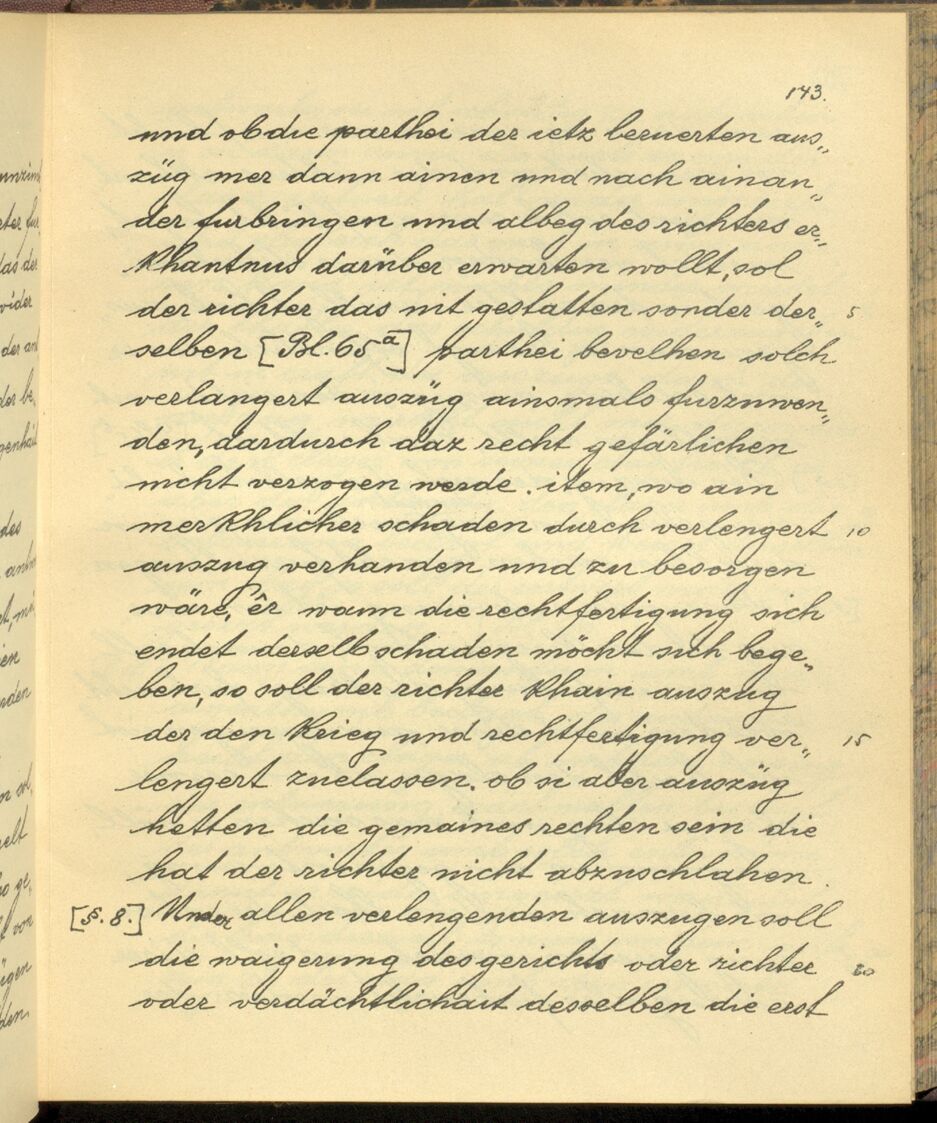 143.
und ob die parthei der ietz beruerten aus„
züg mer dann ainen und nach ainan„
der furbringen und albeg des richters er„
khantnus darüber erwarten wollt, sol
der richter das nit gestatten sonder der„ 5
selben [Bl. 65a] parthei bevelhen solch
verlangert auszüg ainsmals furzuwen„
den, dardurch daz recht gefärlichen
nicht verzogen werde. item, wo ain
merkhlicher schaden durch verlengert 10
auszug verhanden und zu besorgen
wäre, êr wann die rechtfertigung sich
endet derselb schaden möcht sich bege„
ben, so soll der richter khain auszug
der den krieg und rechtfertigung ver„ 15
lengert zuelassen. ob si aber auszüg
hetten die gemaines rechten sein die
hat der richter nicht abzuschlahen.
[§. 8.] Under allen verlengenden auszugen soll
die waigerung des gerichts oder richter 20
oder verdächtlichait desselben die erst